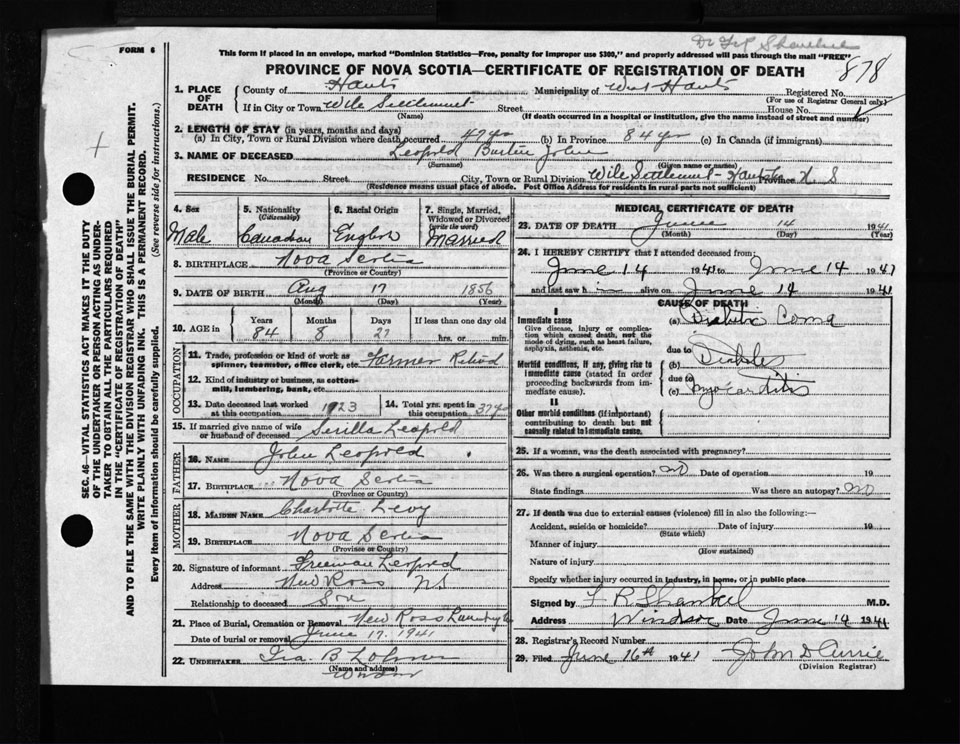 Dr F R Shankel
FORM 6
This form if placed in an envelope, marked "Dominion Statistics—Free, penalty for improper use $300," and properly addressed will pass through the mail "FREE"
878
PROVINCE OF NOVA SCOTIA—CERTIFICATE OF REGISTRATION OF DEATH
1. PLACE OF DEATH
County of Hants Municipality of West Hants Registered No.
(For use of Registrar General only)
If in City or Town Wile Settlement Street House No.
(Name) (If death occurred in a hospital or institution, give the name instead of street and number)
2. LENGTH OF STAY (in years, months and days)
(a) In City, Town or Rural Division where death occurred 47 yr (b) In Province 84 yr (c) In Canada (if immigrant)
3. NAME OF DECEASED Leopold John
(Surname) (Given name or names)
RESIDENCE No. Street City, Town or Rural Division Wile Settlement - Hants Province N.S
(Residence means usual place of abode. Post Office Address for residents in rural parts not sufficient)
4. Sex Male
5. Nationality (Citizenship) Canadian
6. Racial Origin English
7. Single, Married, Widowed or Divorced (write the word) Married
8. BIRTHPLACE Nova Scotia
(Province or Country)
9. DATE OF BIRTH Aug 17 1856
(Month) (Day) (Year)
10. AGE in Years Months Days If less than one day old
84 8 27 hrs. or min.
OCCUPATION
11. Trade, profession or kind of work as spinner, teamster, office clerk, etc. Farmer Retired
12. Kind of industry or business, as cotton-mill, lumbering, bank, etc.
13. Date deceased last worked at this occupation 1923
14. Total yrs. spent in this occupation 37 yr
15. If married give name of wife or husband of deceased Serilla Leopold
FATHER
16. Name John Leopold
17. Birthplace Nova Scotia
(Province or Country)
MOTHER
18. Maiden Name Charlotte Levy
19. Birthplace Nova Scotia
(Province or Country)
20. Signature of informant Freeman Leopold
Address New Ross NS
Relationship to deceased Son
21. Place of Burial, Cremation or Removal New Ross
Date of burial or removal June 17. 1941
22. UNDERTAKER Ira. B Lohnes
(Name and address)
Windsor
MEDICAL CERTIFICATE OF DEATH
23. DATE OF DEATH June 14 1941
(Month) (Day) (Year)
24. I HEREBY CERTIFY that I attended deceased from:
June 14 1941 to June 14 1941
and last saw him alive on June 14 1941
CAUSE OF DEATH
I
Immediate cause
Give disease, injury or complication which caused death, not the mode of dying, such as heart failure, asphyxia, asthenia, etc.
(a) Diabetic Coma
due to
Morbid conditions, if any, giving rise to immediate cause (stated in order proceeding backwards from immediate cause).
(b) Diabetes
due to
(c) Myocarditis
II
Other morbid conditions (if important) contributing to death but not causally related to immediate cause.
25. If a woman, was the death associated with pregnancy?
26. Was there a surgical operation? no Date of operation 19
State findings Was there an autopsy? no
27. If death was due to external causes (violence) fill in also the following:—
Accident, suicide or homicide? Date of injury 19
(State which)
Manner of injury
(How sustained)
Nature of injury
Specify whether injury occurred in industry, in home, or in public place
Signed by F R Shankel M.D.
Address Windsor Date June 14 1941
28. Registrar's Record Number
29. Filed June 16th 1941 John D Currie
(Division Registrar)
SEC. 46—VITAL STATISTICS ACT MAKES IT THE DUTY
OF THE UNDERTAKER OR PERSON ACTING AS UNDER-
TAKER TO OBTAIN ALL THE PARTICULARS REQUIRED
IN THE "CERTIFICATE OF REGISTRATION OF DEATH"
AND TO FILE THE SAME WITH THE DIVISION REGISTRAR WHO SHALL ISSUE THE BURIAL PERMIT.
WRITE PLAINLY WITH UNFADING INK. THIS IS A PERMANENT RECORD.
Every item of information should be carefully supplied. (See reverse side for instructions.)